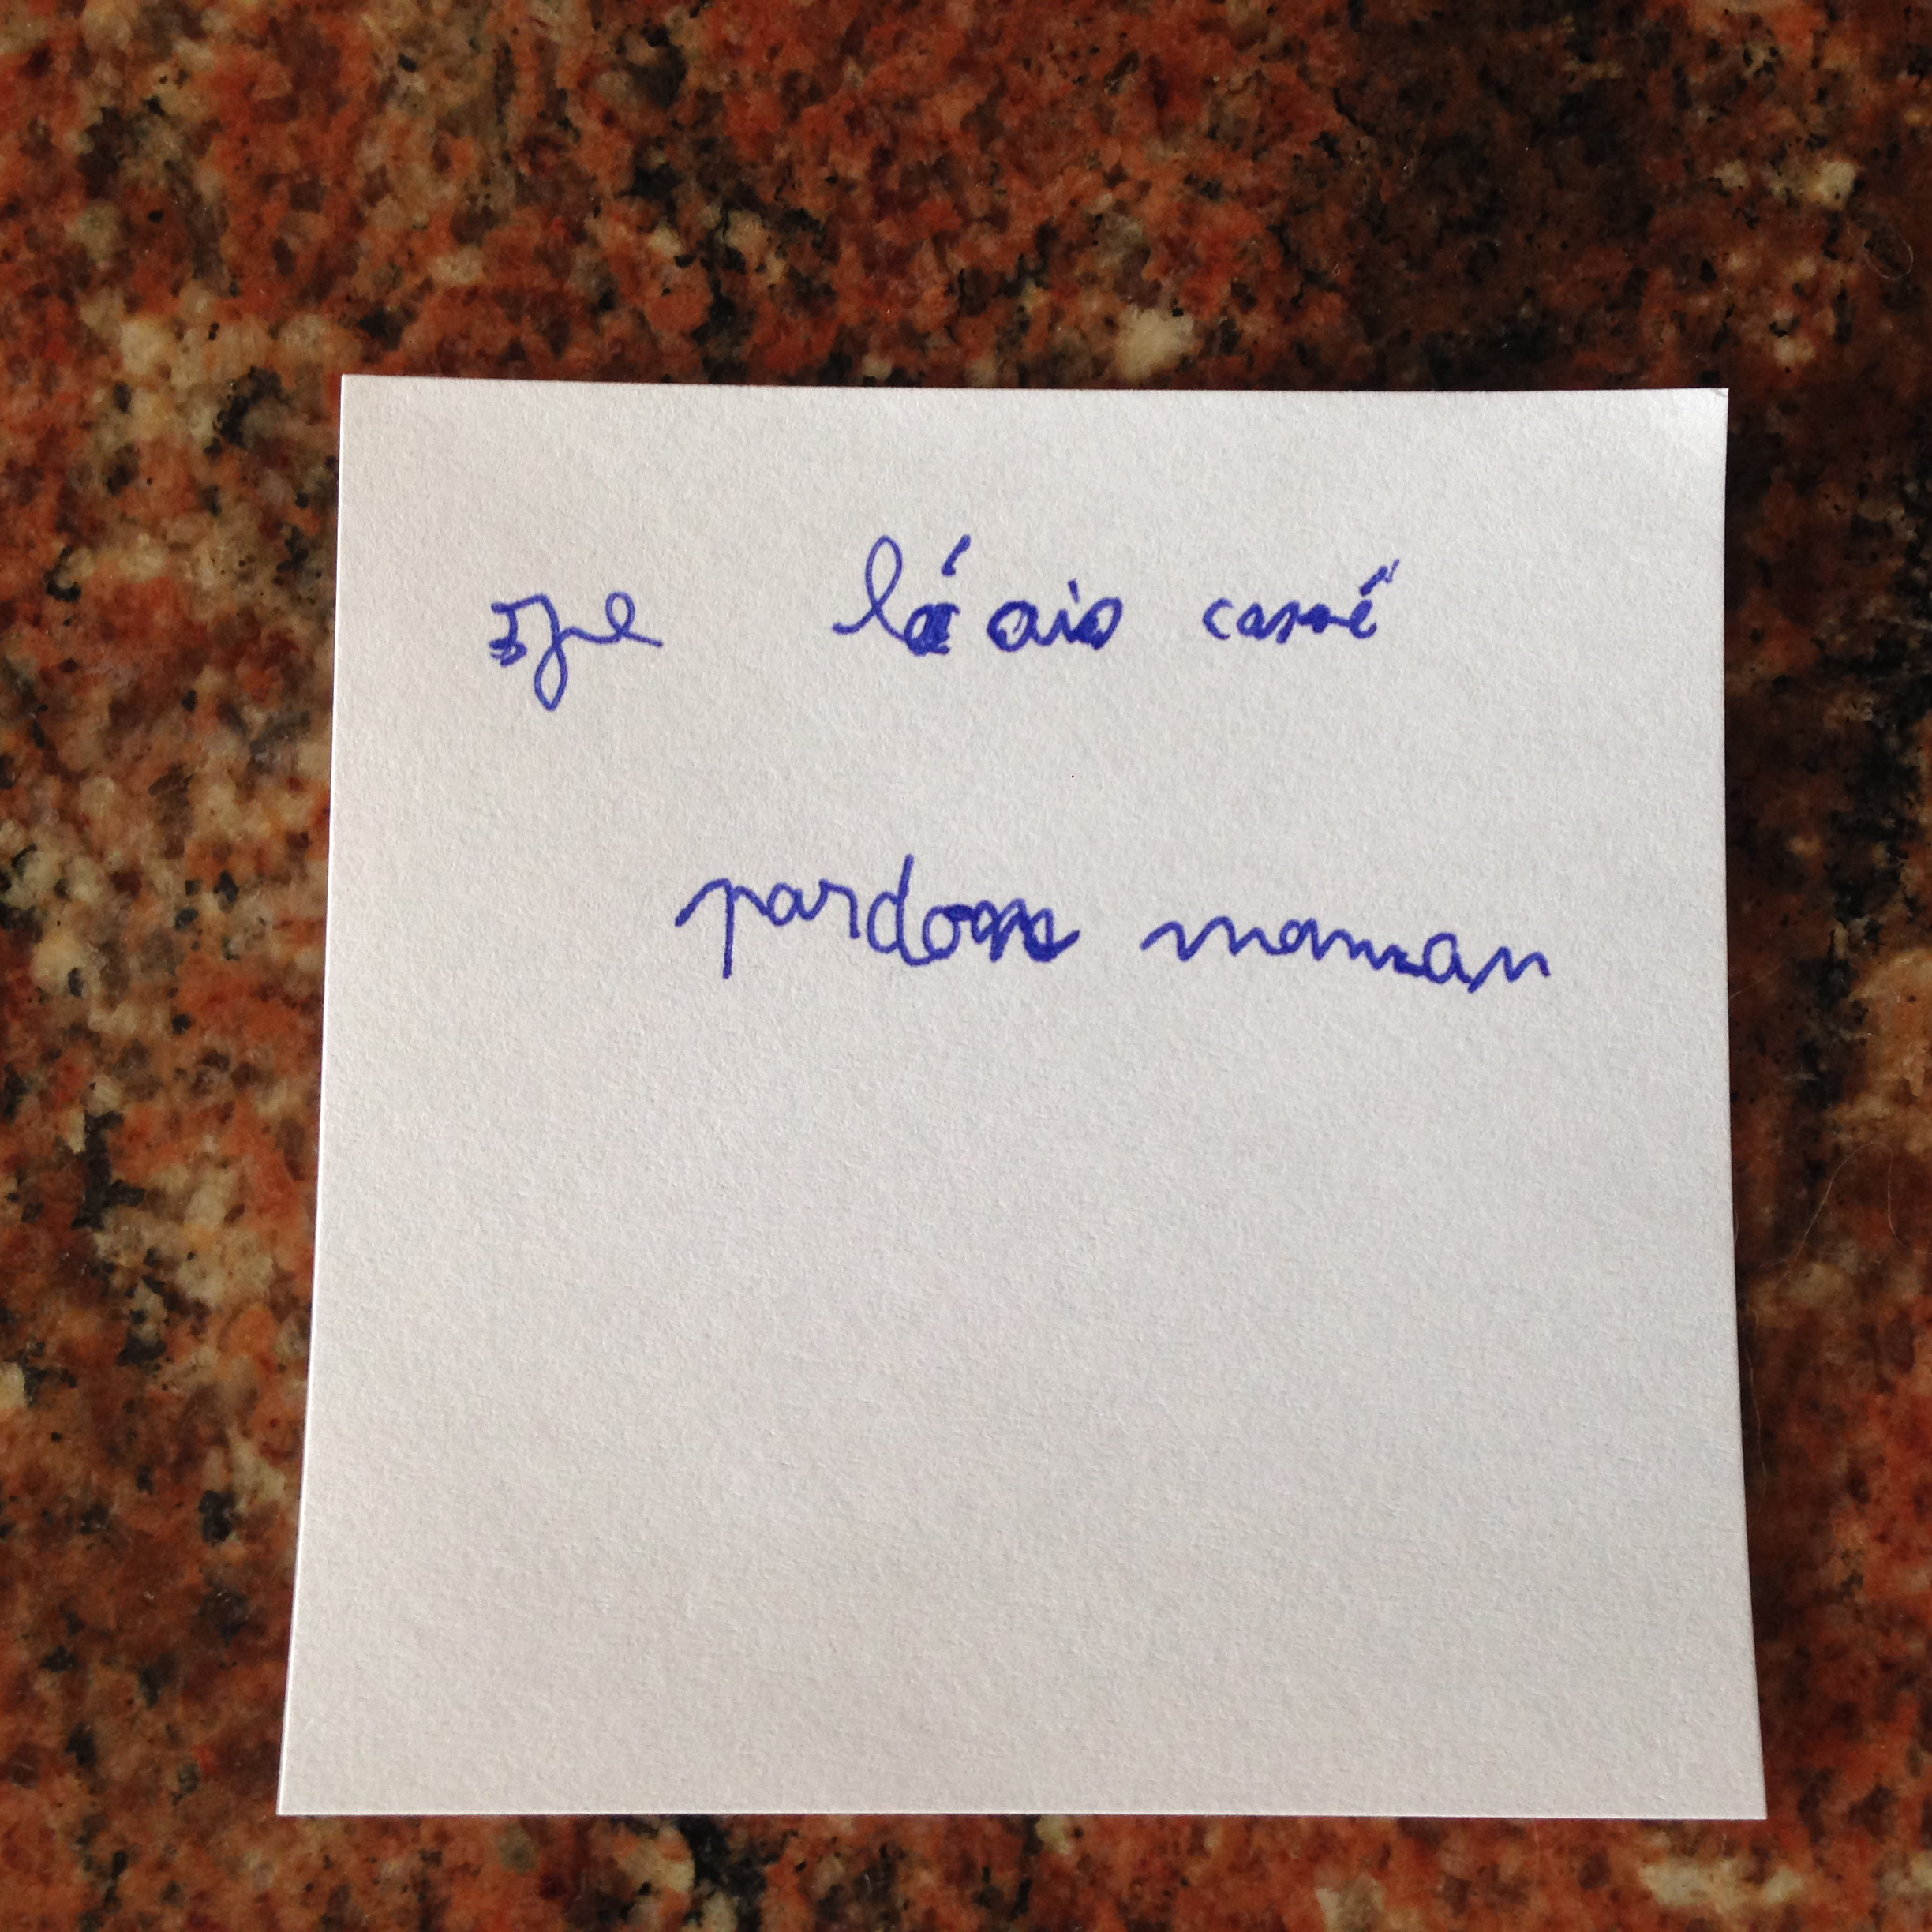 je lé ais cassé
pardon maman